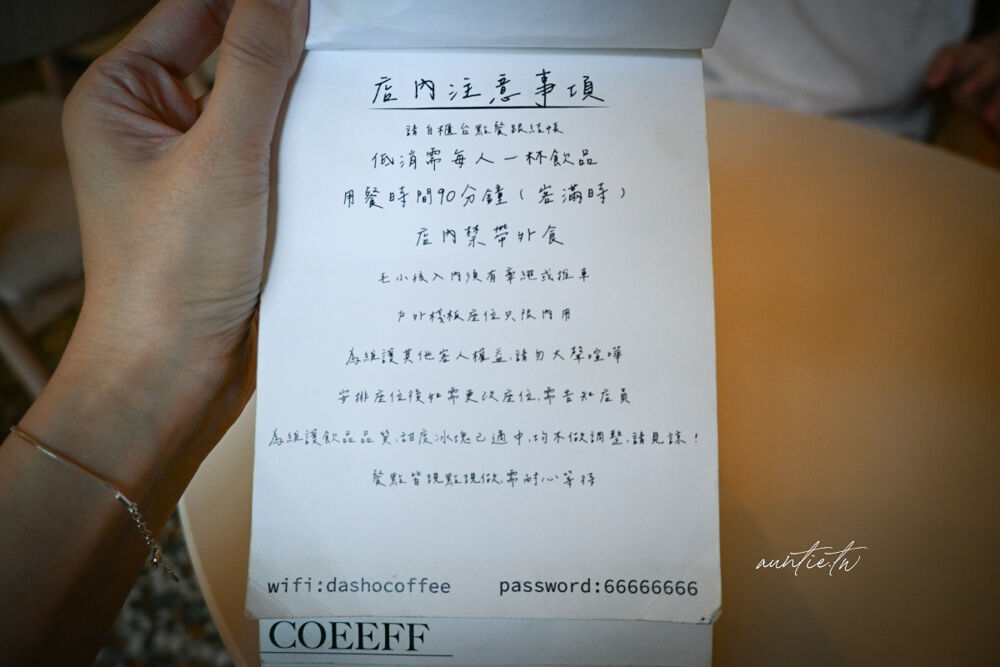 店內注意事項
請自櫃台點餐跟結帳
低消需每人一杯飲品
用餐時間90分鐘(客滿時)
店內禁帶外食
毛小孩入內須有牽繩或推車
戶外棧板座位只限內用
為維護其他客人權益,請勿大聲喧嘩
安排座位後如需更改座位,需告知店員
為維護飲品品質,甜度冰塊已適中,均不做調整,請見諒!
餐點皆現點現做,需耐心等待
wifi:dashocoffee password:66666666
COEEFF
auntie.tw